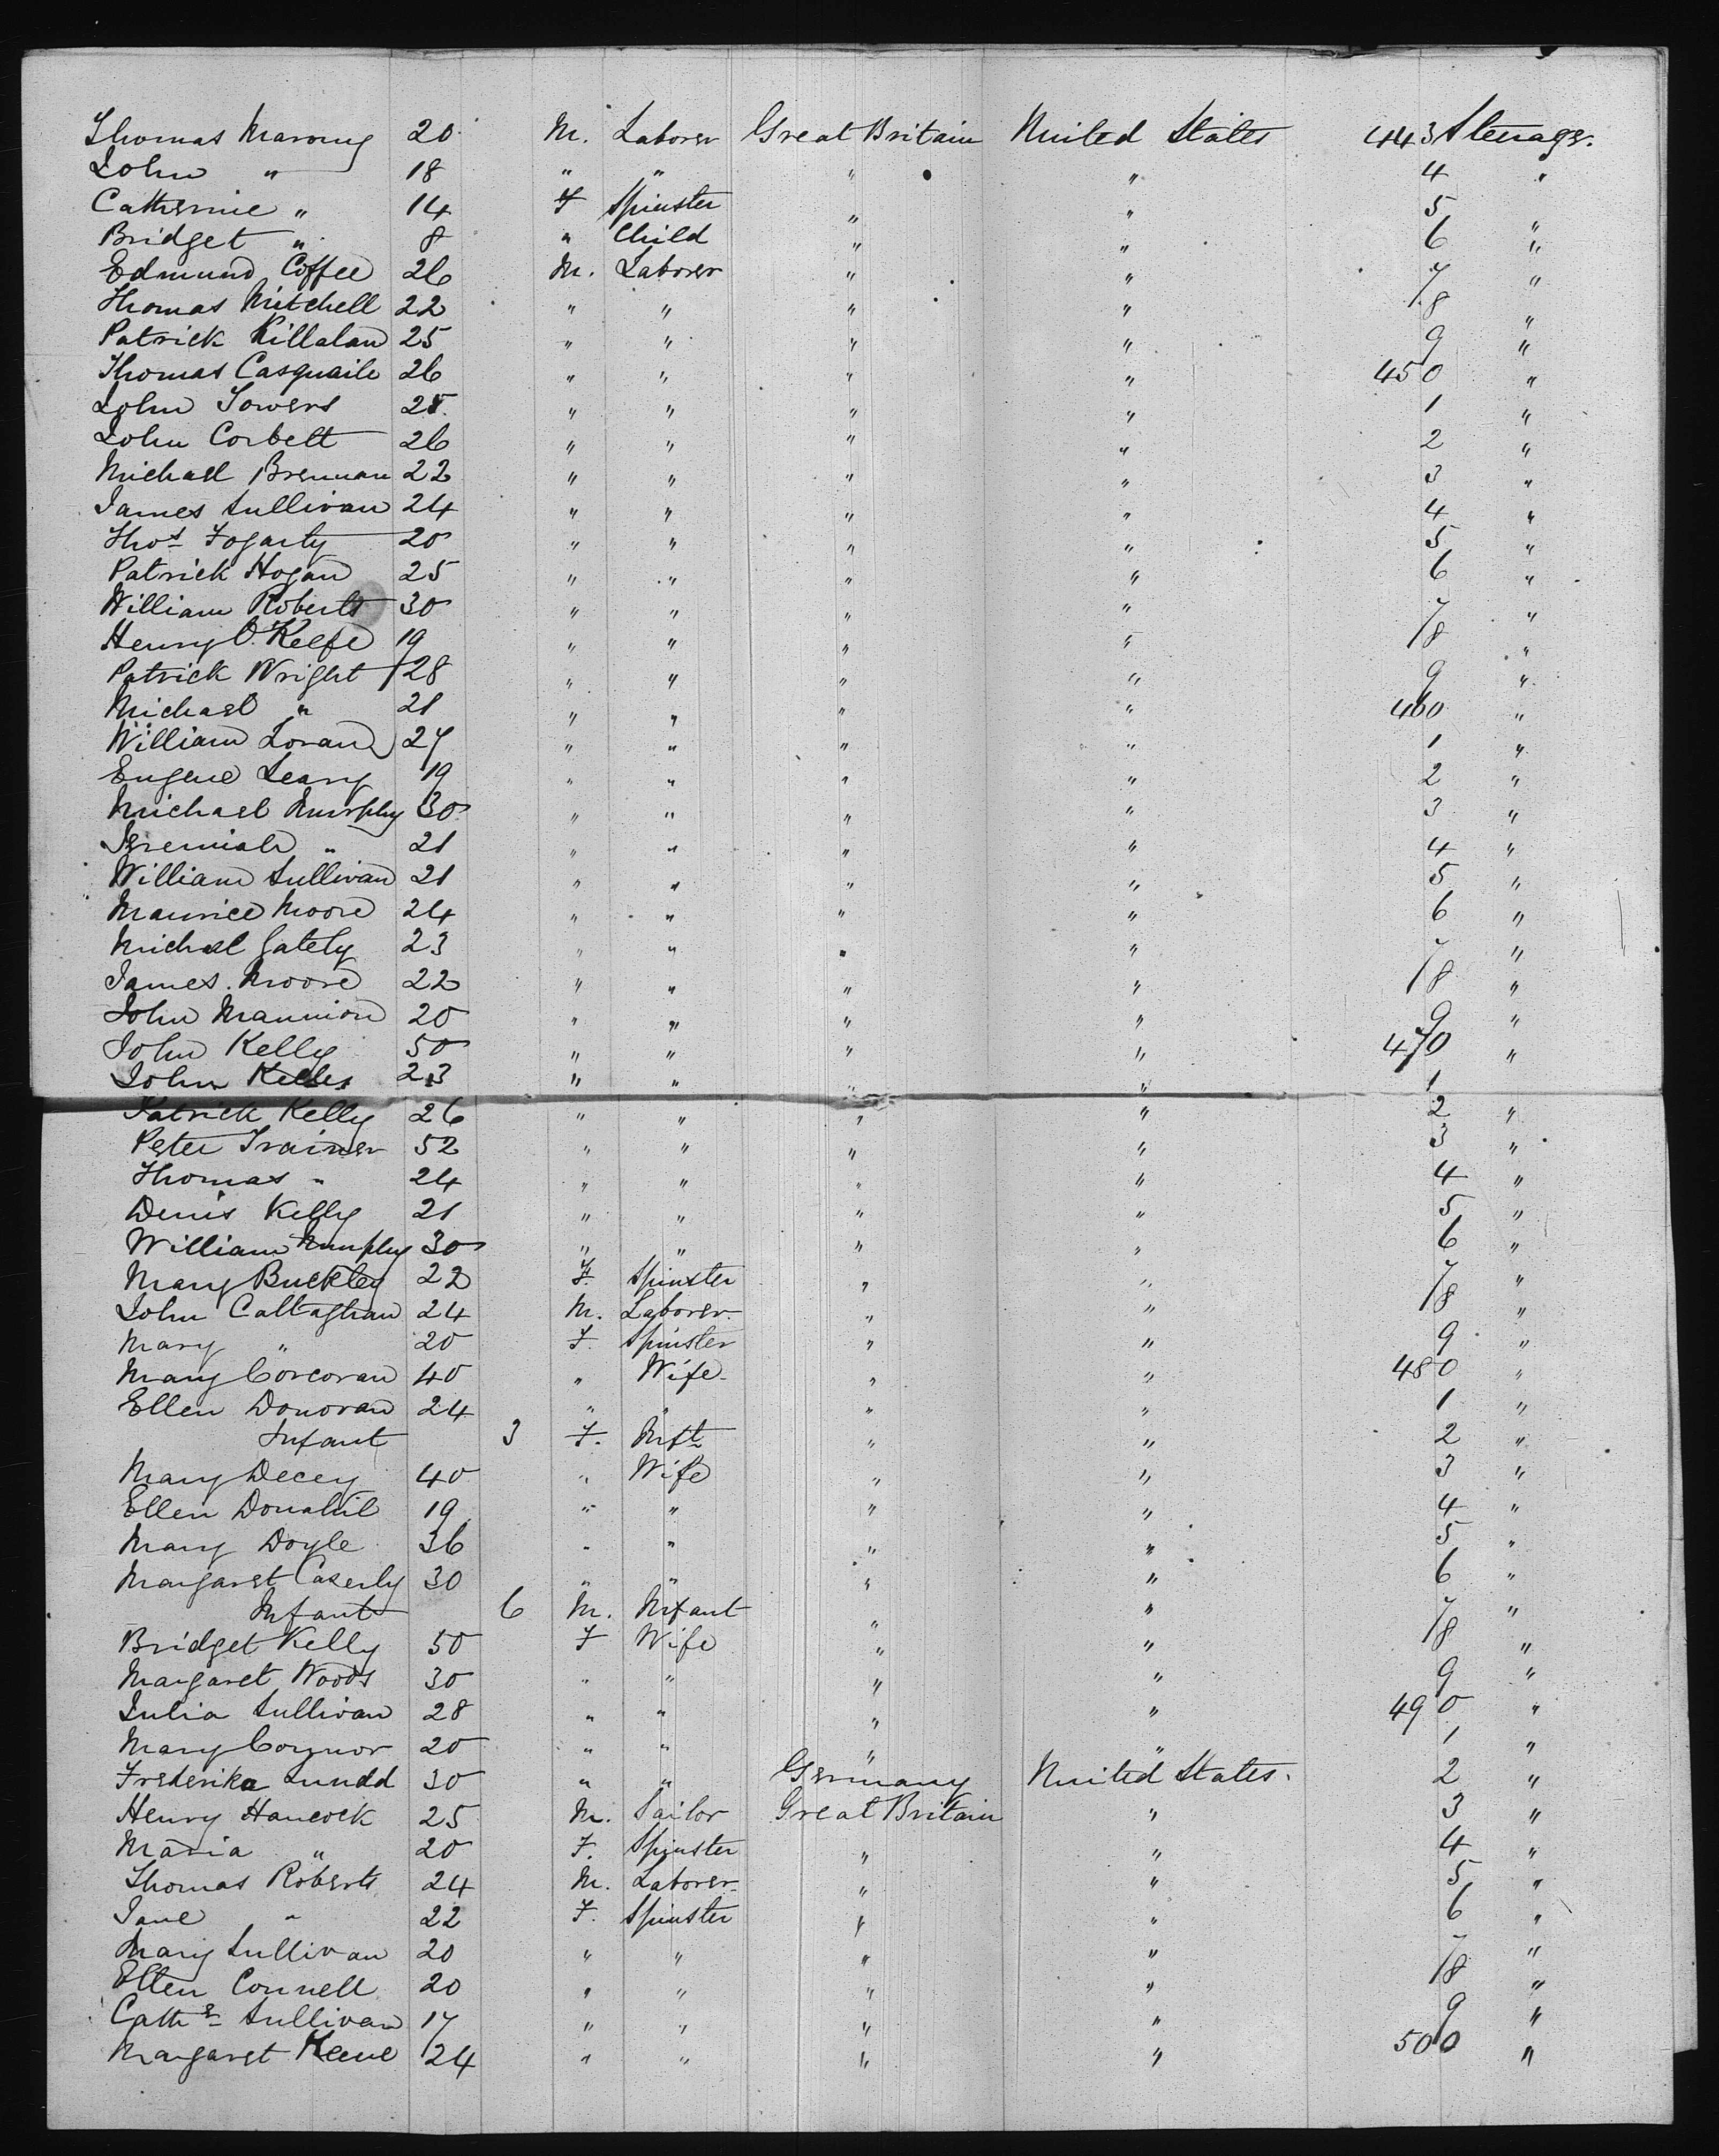 Thomas Marony 20 M. Laborer Great Britain United States 443 Steerage.
John " 18 " " " " 4 "
Catherine " 14 F Spinster " " 5 "
Bridget " 8 " Child " " 6 "
Edmund Coffee 26 M. Laborer " " 7 "
Thomas Mitchell 22 " " " " 8 "
Patrick Killalan 25 " " " " 9 "
Thomas Casquaile 26 " " " " 450 "
John Towers " " " " 1 "
John Corbett 26 " " " " 2 "
Michael Brennan 22 " " " " 3 "
James Sullivan 24 " " " " 4 "
Thos Fogarty 20 " " " " 5 "
Patrick Hogan 25 " " " " 6 "
William Roberts 30 " " " " 7 "
Henry O'Keefe 19 " " " " 8 "
Patrick Wright 28 " " " " 9 "
Michael " 21 " " " " 460 "
William Loran 27 " " " " 1 "
Eugene Leary 19 " " " " 2 "
Michael Murphy 30 " " " " 3 "
Jeremiah " 21 " " " " 4 "
William Sullivan 21 " " " " 5 "
Maurice Moore 24 " " " " 6 "
Michael Gately 23 " " " " 7 "
James Moore 22 " " " " 8 "
John Mannion 20 " " " " 9 "
John Kelly 50 " " " " 470 "
John 23 " " " " 1
Patrick Kelly 26 " " " " 2 "
Peter Trainer 52 " " " " 3 "
Thomas " 24 " " " " 4 "
Denis Kelly 21 " " " " 5 "
William Murphy 30 " " " " 6 "
Mary Buckley 22 F. Spinster " " 7 "
John Callaghan 24 M. Laborer " " 8 "
Mary " 20 F. Spinster " " 9 "
Mary Corcoran 40 " Wife " " 480 "
Ellen Donovan 24 " " " " 1 "
Infant 3 F. Inft " " 2 "
Mary Decey 40 " Wife " " 3 "
Ellen Donahil 19 " " " " 4 "
Mary Doyle 36 " " " " 5 "
Margaret Caserly 30 " " " " 6 "
Infant 6 M. Infant " " 7 "
Bridget Kelly 50 F Wife " " 8 "
Margaret Woods 30 " " " " 9 "
Julia Sullivan 28 " " " " 490 "
Mary Connor 20 " " " " 1 "
Frederika Lundd 30 " " Germany United States. 2 "
Henry Hancock 25 M. Tailor Great Britain " 3 "
Maria " 20 F. Spinster " " 4 "
Thomas Roberts 24 M. Laborer " " 5 "
Jane " 22 F. Spinster " " 6 "
Mary Sullivan 20 " " " " 7 "
Ellen Connell 20 " " " " 8 "
Cathe Sullivan 17 " " " " 9 "
Margaret Keene 24 " " " " 500 "